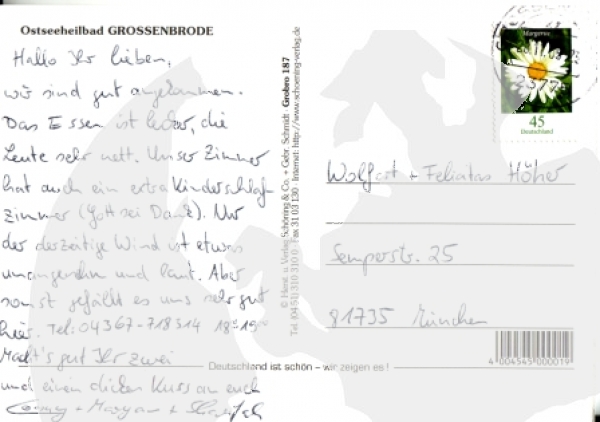 Ostseeheilbad GROSSENBRODE
Hallo Ihr lieben,
wir sind gut angekommen.
Das Essen ist lecker, die
Leute sehr nett. Unser Zimmer
hat auch ein extra Kinderschlaf-
zimmer (Gott sei Dank). Nur
der derzeitige Wind ist etwas
unangenehm und laut. Aber
sonst gefällt es uns sehr gut
hier. Tel: 04367-718314
Macht's gut Ihr zwei
und einen dicken Kuss an euch
© Herst. u. Verlag Schöning & Co. + Gebr. Schmidt Grobro 187
Tel. (04 51) 310 310 Fax 31 03 130 · Internet: http://www.schoening-verlag.de
Margerite
45
Deutschland
Wolfart + Felicitas Höher
Semperstr. 25
81735 München
4 004545 000019
Deutschland ist schön – wir zeigen es !